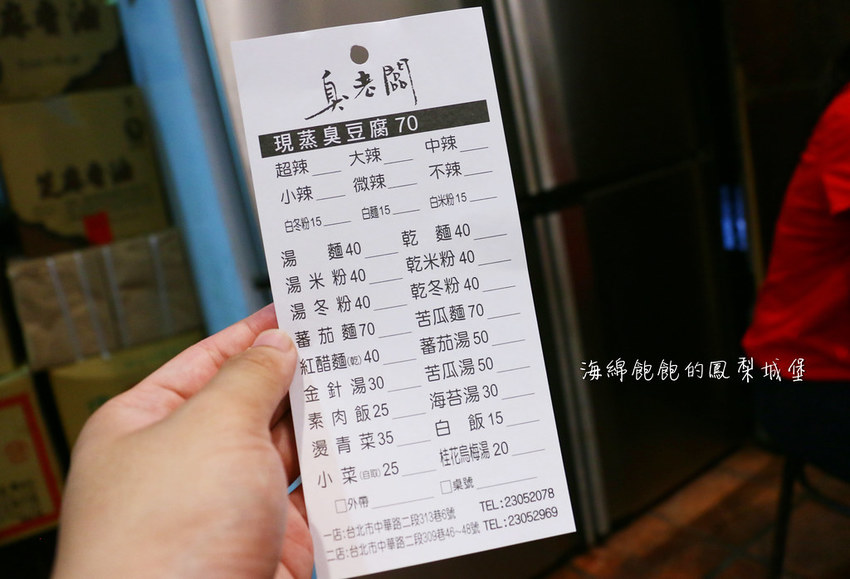 臭老闆
現蒸臭豆腐 70
超辣___ 大辣___ 中辣___
小辣___ 微辣___ 不辣___
白冬粉15___ 白麵15___ 白米粉15___
湯 麵40___ 乾 麵40___
湯米粉40___ 乾米粉40___
湯冬粉40___ 乾冬粉40___
蕃茄麵70___ 苦瓜麵70___
紅醋麵(乾)40___ 蕃茄湯50___
金針湯30___ 苦瓜湯50___
素肉飯25___ 海苔湯30___
燙青菜35___ 白 飯15___
小菜(自取)25___ 桂花烏梅湯20___
□外帶___ □桌號___
一店:台北市中華路二段313巷6號 TEL:23052078
二店:台北市中華路二段309巷46~48號 TEL:23052969
海綿飽飽的鳳梨城堡
芝麻香油